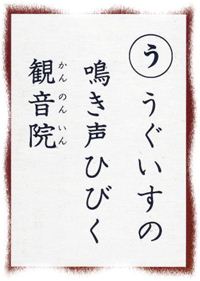 う
うぐいすの
鳴き声ひびく
観音院
かんのんいん